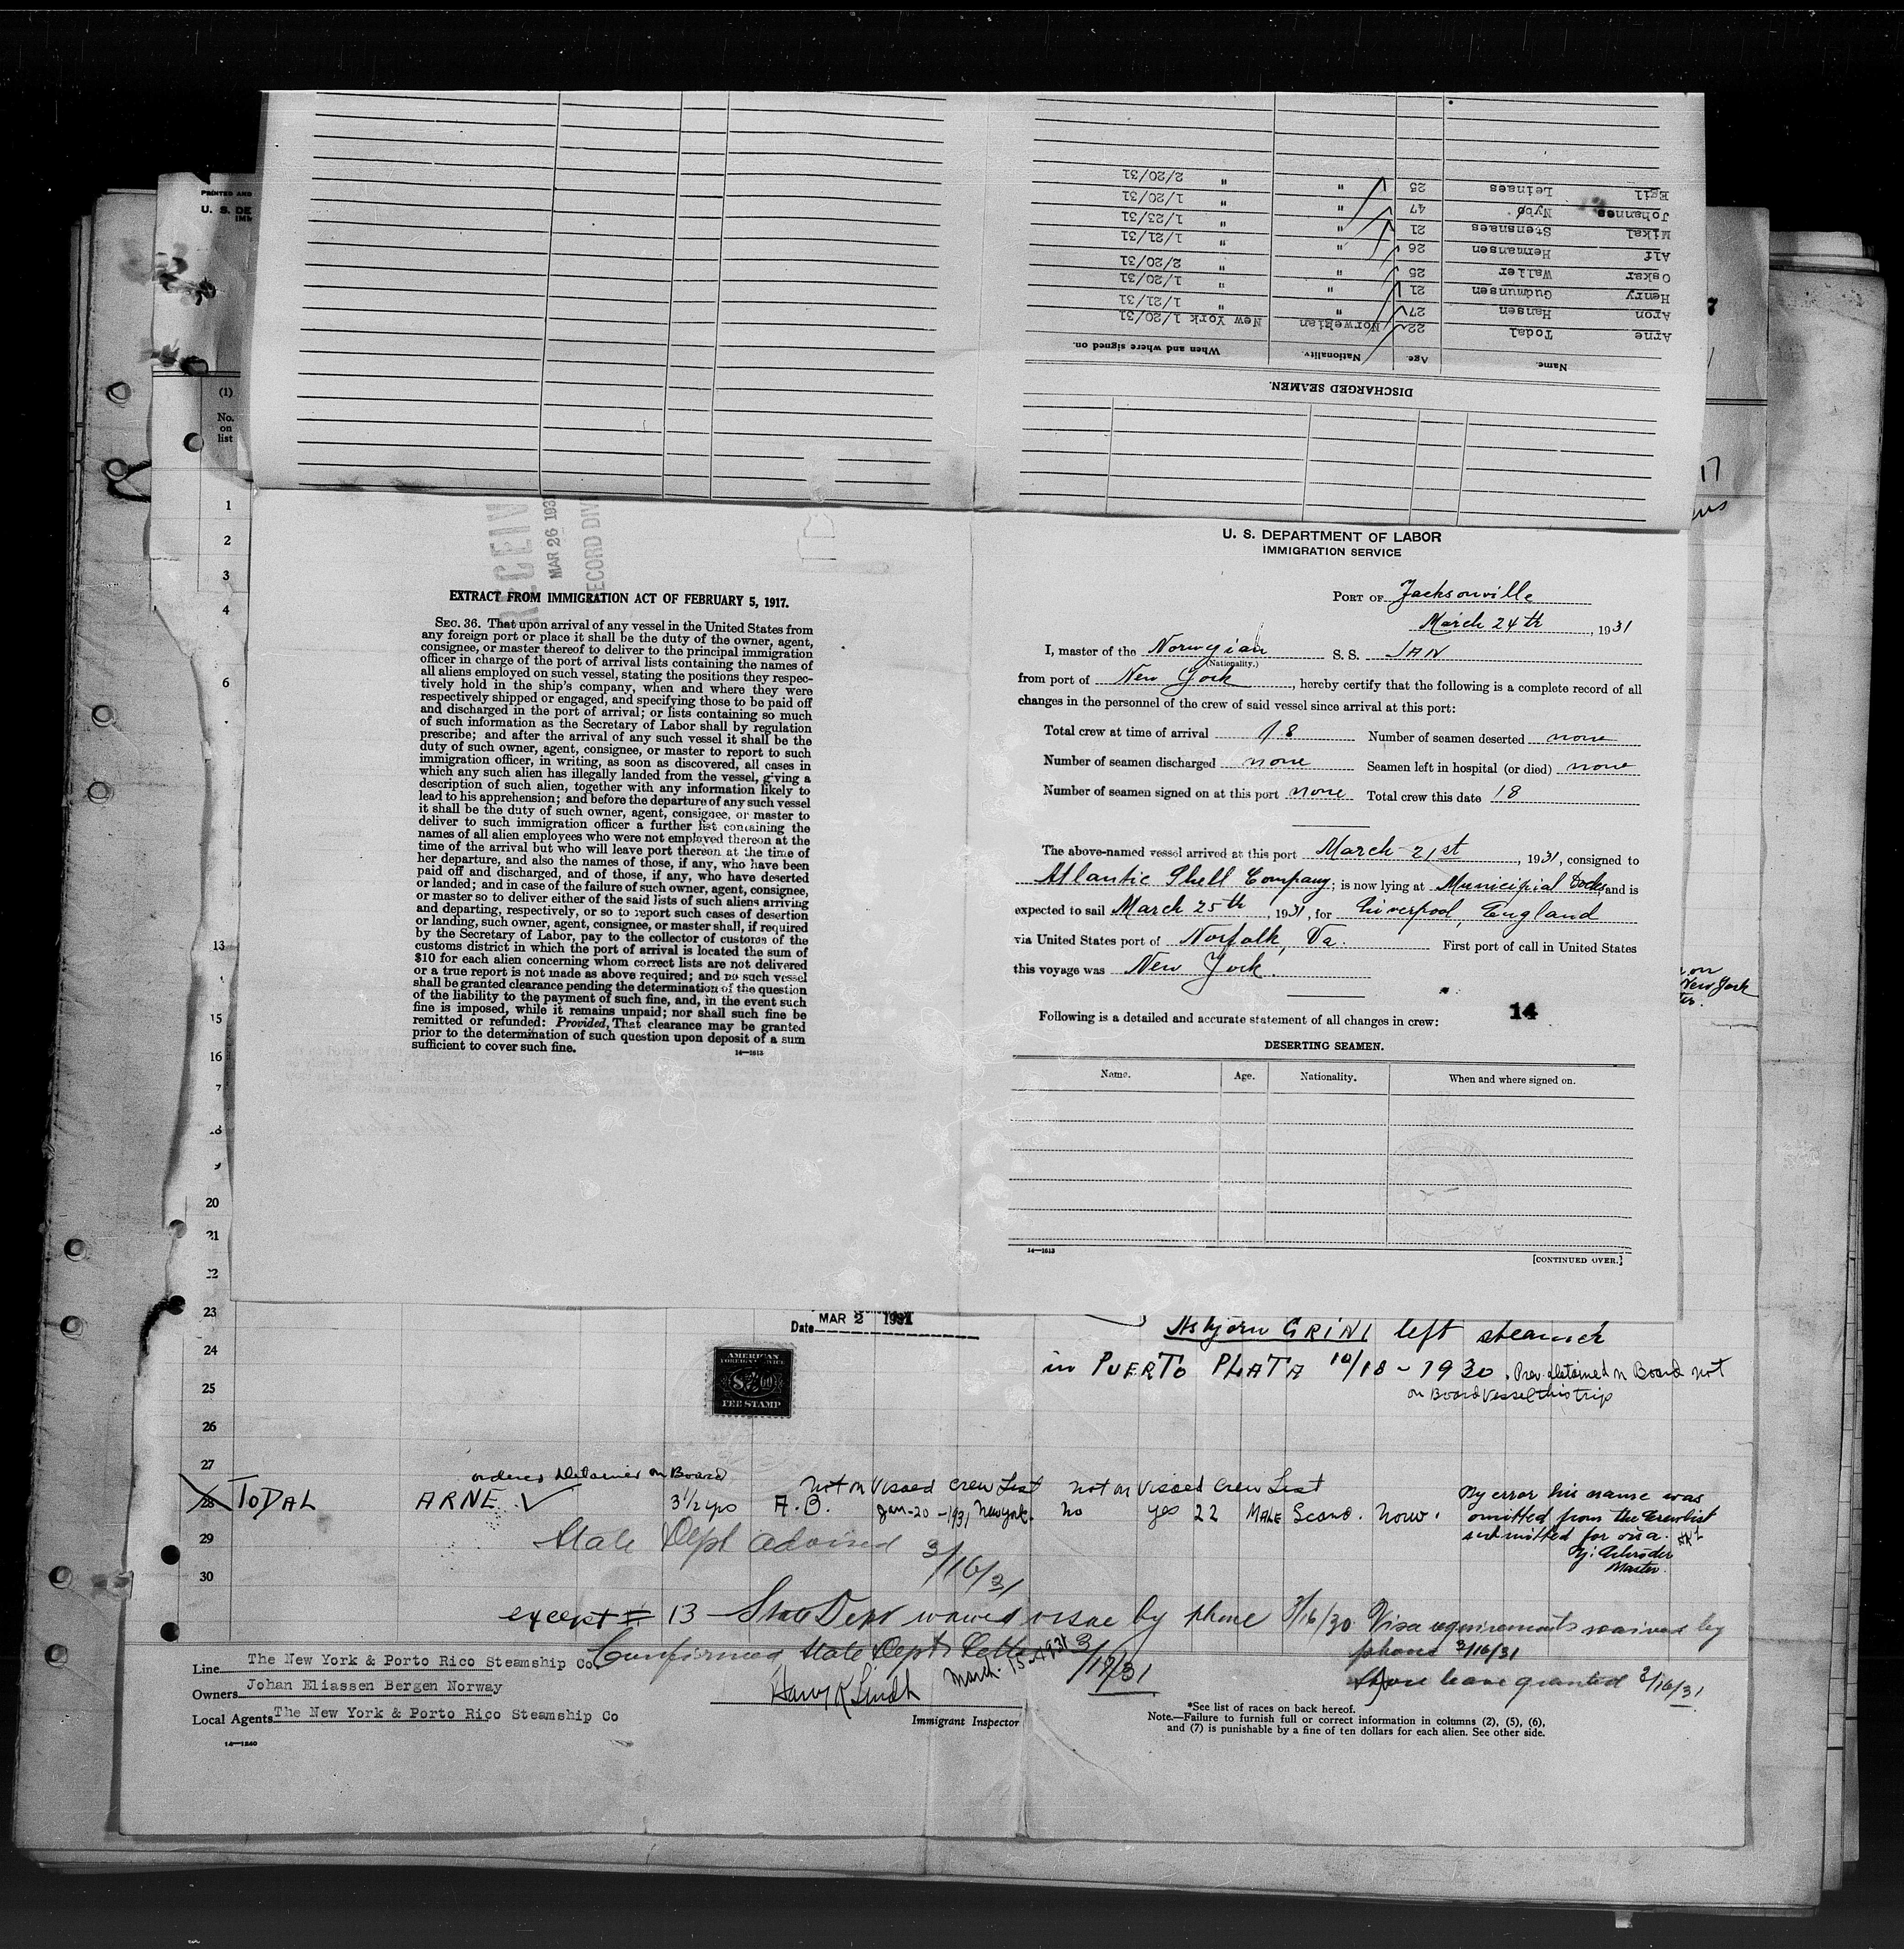 PRINTED AND
U. S. DE
(1)
No.
on
list
1
2
3
4
6
13
15
16
20
21
22
23
24
25
26
27
28
29
30
DISCHARGED SEAMEN.
Name. Age. Nationality. When and where signed on.
Arne Todal 22 Norwegian New York 1/20/31
Aron Hansen 27 " " 1/21/31
Henry Gudmunsen 21 " " 1/20/31
Oskar Waller 25 " " 2/20/31
Alf Hermansen 26 " " 1/21/31
Mikal Stensnaes 21 " " 1/23/31
Johannes Nybø 47 " " 1/20/31
Egil Leinaes 25 " " 2/20/31
RECEIV
MAR 26 193
RECORD DIV
EXTRACT FROM IMMIGRATION ACT OF FEBRUARY 5, 1917.
SEC. 36. That upon arrival of any vessel in the United States from
any foreign port or place it shall be the duty of the owner, agent,
consignee, or master thereof to deliver to the principal immigration
officer in charge of the port of arrival lists containing the names of
all aliens employed on such vessel, stating the positions they respec-
tively hold in the ship's company, when and where they were
respectively shipped or engaged, and specifying those to be paid off
and discharged in the port of arrival; or lists containing so much
of such information as the Secretary of Labor shall by regulation
prescribe; and after the arrival of any such vessel it shall be the
duty of such owner, agent, consignee, or master to report to such
immigration officer, in writing, as soon as discovered, all cases in
which any such alien has illegally landed from the vessel, giving a
description of such alien, together with any information likely to
lead to his apprehension; and before the departure of any such vessel
it shall be the duty of such owner, agent, consignee, or master to
deliver to such immigration officer a further list containing the
names of all alien employees who were not employed thereon at the
time of the arrival but who will leave port thereon at the time of
her departure, and also the names of those, if any, who have been
paid off and discharged, and of those, if any, who have deserted
or landed; and in case of the failure of such owner, agent, consignee,
or master so to deliver either of the said lists of such aliens arriving
and departing, respectively, or so to report such cases of desertion
or landing, such owner, agent, consignee, or master shall, if required
by the Secretary of Labor, pay to the collector of customs of the
customs district in which the port of arrival is located the sum of
$10 for each alien concerning whom correct lists are not delivered
or a true report is not made as above required; and no such vessel
shall be granted clearance pending the determination of the question
of the liability to the payment of such fine, and, in the event such
fine is imposed, while it remains unpaid; nor shall such fine be
remitted or refunded: Provided, That clearance may be granted
prior to the determination of such question upon deposit of a sum
sufficient to cover such fine.
14—1613
U. S. DEPARTMENT OF LABOR
IMMIGRATION SERVICE
PORT OF Jacksonville
March 24th, 1931
I, master of the Norwegian S. S. JAN
(Nationality.)
from port of New York, hereby certify that the following is a complete record of all
changes in the personnel of the crew of said vessel since arrival at this port:
Total crew at time of arrival 18 Number of seamen deserted none
Number of seamen discharged none Seamen left in hospital (or died) none
Number of seamen signed on at this port none Total crew this date 18
The above-named vessel arrived at this port March 21st, 1931, consigned to
Atlantic Shell Company; is now lying at Municipial Docks, and is
expected to sail March 25th, 1931, for Liverpool, England
via United States port of Norfolk, Va. First port of call in United States
this voyage was New York.
14
Following is a detailed and accurate statement of all changes in crew:
DESERTING SEAMEN.
Name. Age. Nationality. When and where signed on.
14—1613
[CONTINUED OVER.]
on
New York
Date MAR 2 1931
AMERICAN
FOREIGN SERVICE
FEE STAMP
Asbjorn GRINI left steamer
in PUERTO PLATA 10/18 - 1930. Prev. detained on Board not
on Board vessel this trip
ordered detained on Board
Not on Visaed Crew List Not on Visaed Crew List
TODAL ARNE 3½ yrs A.B. Jan-20-1931 New York. No yes 22 MALE Scand. Norw.
By error his name was
omitted from the Crewlist
submitted for visa.
Schrøder
Master.
State Dept advised 3/16/31
except # 13 - State Dept waived visae by phone 3/16/30. Visa requirements waived by
phone 3/16/31
Confirmed State Dept Letter 3/17/31
March 15-1931
Shore leave granted 3/16/31
Line The New York & Porto Rico Steamship Co.
Owners Johan Eliassen Bergen Norway
Local Agents The New York & Porto Rico Steamship Co
14—1240
Harry R Lindh
Immigrant Inspector
*See list of races on back hereof.
Note.—Failure to furnish full or correct information in columns (2), (5), (6),
and (7) is punishable by a fine of ten dollars for each alien. See other side.